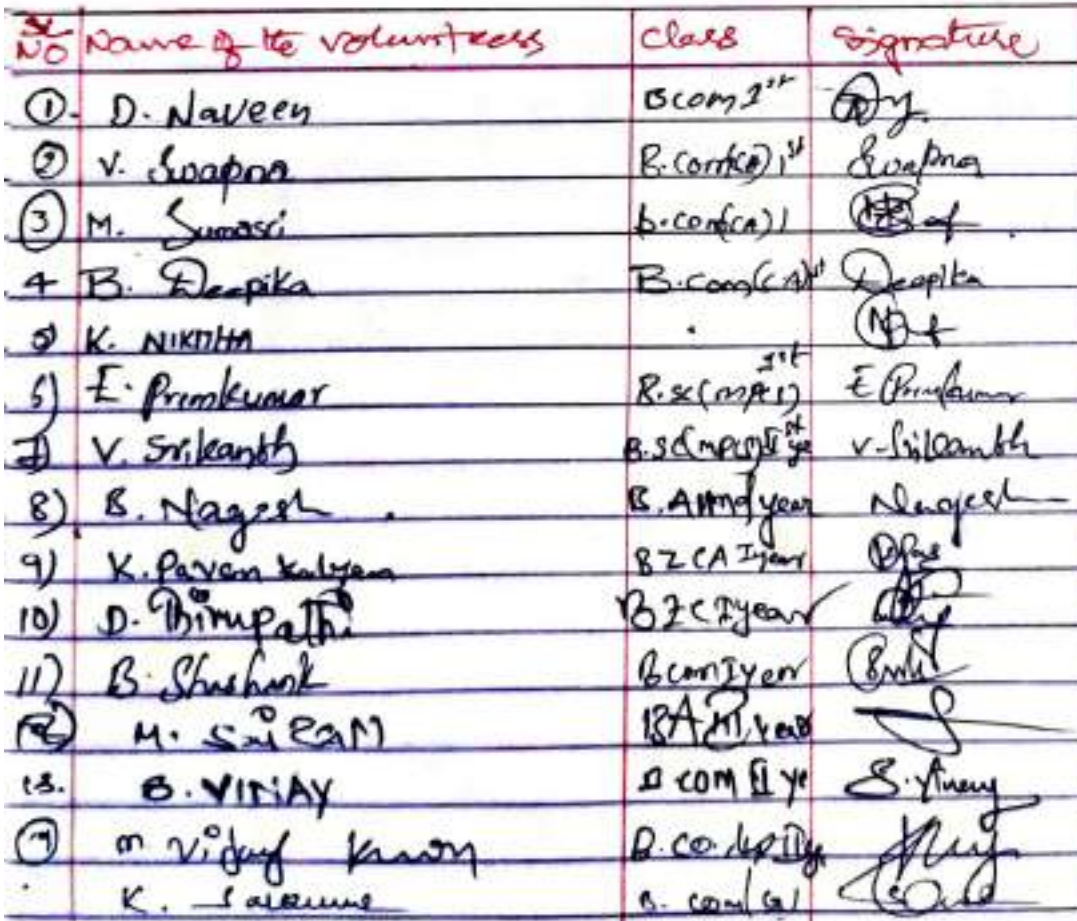 SL NO Name of the volunteers class signature
1. D. Naveen Bcom 1st
2 V. Swapna B.com(CA) 1st Swapna
3 M. Sumasri b.com(CA) 1
4 B. Deepika B.com(CA) 1st Deepika
5) K. NIKITHA
6) E. Premkumar B.sc(MPCS) 1st E Premkumar
7) V. Srikanth B.SC(MPCS) V-Srikanth
8) B. Nagesh B.A IInd year Nagesh
9) K. Pavan kalyan BZCA I year
10) D. Thirupathi BZC I year
11) B. Shashank Bcom I year
12) M. Sai RAM BA year
13. B. VINAY B com II ye
M Vijay
K. B. com(CA)